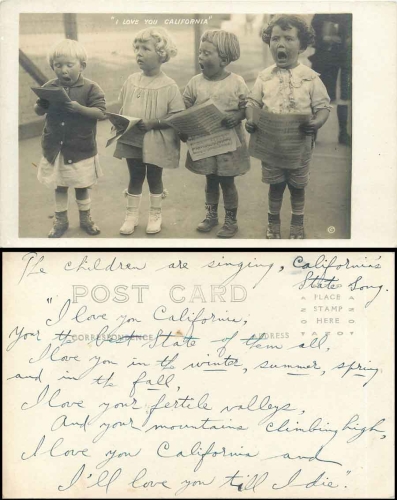 "I LOVE YOU CALIFORNIA"
The children are singing, California's
State Song.
POST CARD
CORRESPONDENCE
ADDRESS
PLACE
STAMP
HERE
"I love you California,
Your the best State of them all,
I love you in the winter, summer, spring
and in the fall,
I love your fertile valleys,
And your mountains climbing high,
I love you California and
I'll love you till I die".